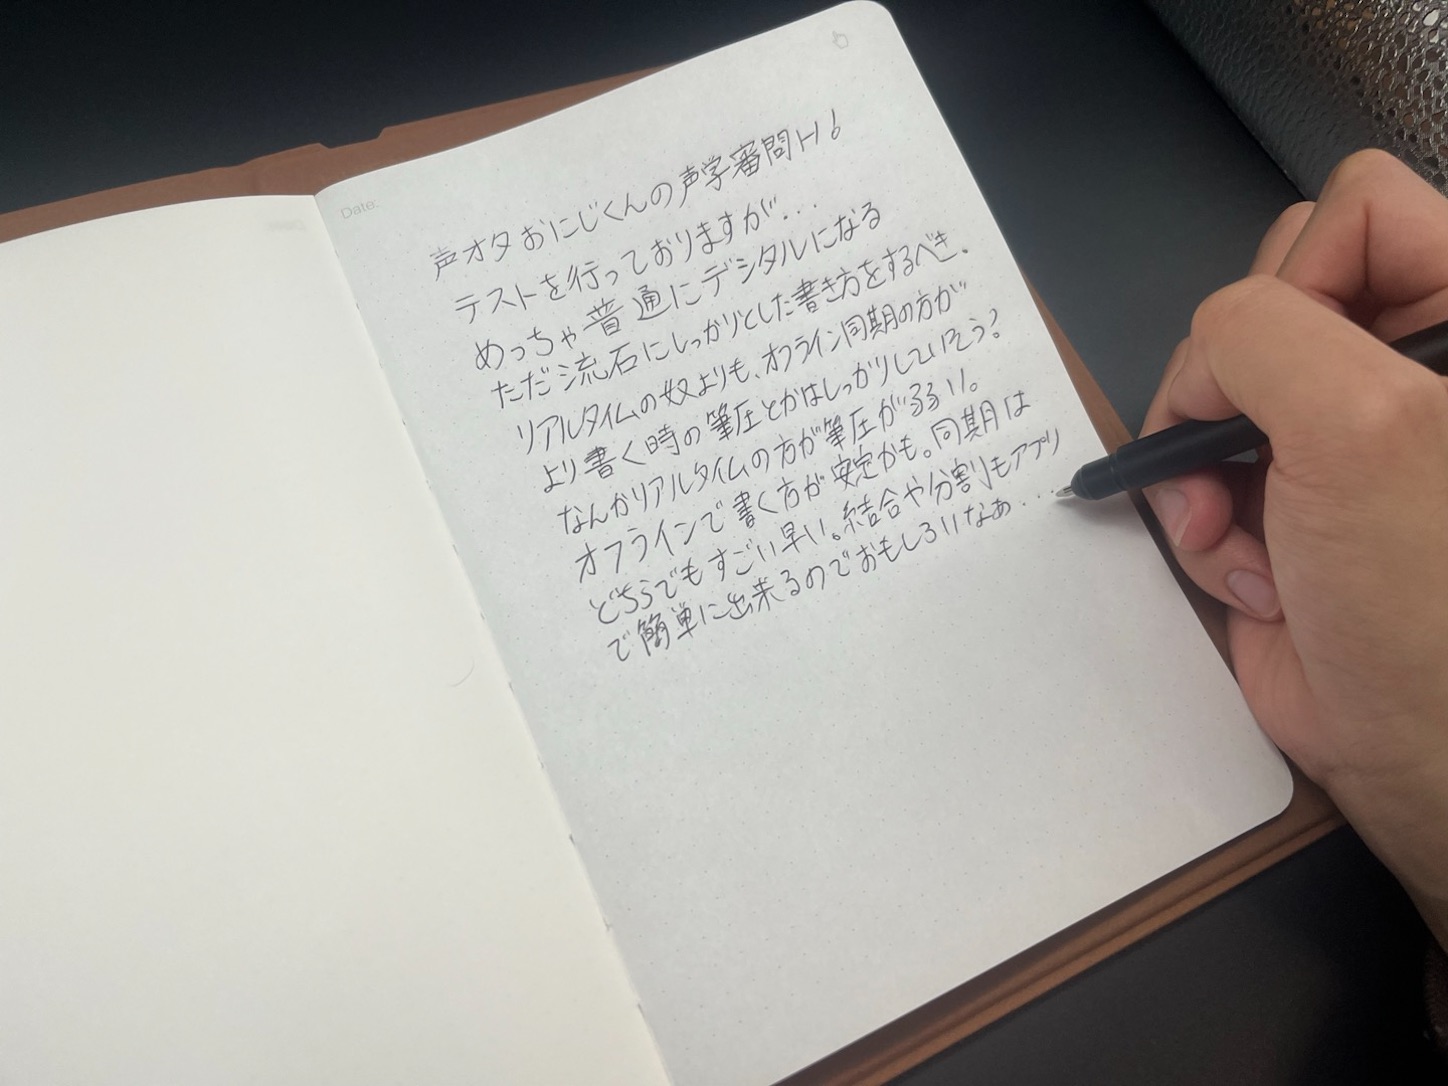 Date:
声オタおにじくんの声学審問H!
テストを行っておりますが...
めっちゃ普通にデジタルになる
ただ流石にしっかりとした書き方をするべき.
リアルタイムの奴よりも、オフライン同期の方が
より書く時の筆圧とかはしっかりしていそう?
なんかリアルタイムの方が筆圧が弱い。
オフラインで書く方が安定かも。同期は
どちらでもすごい早い。結合や分割もアプリ
で簡単に出来るのでおもしろいなぁ...